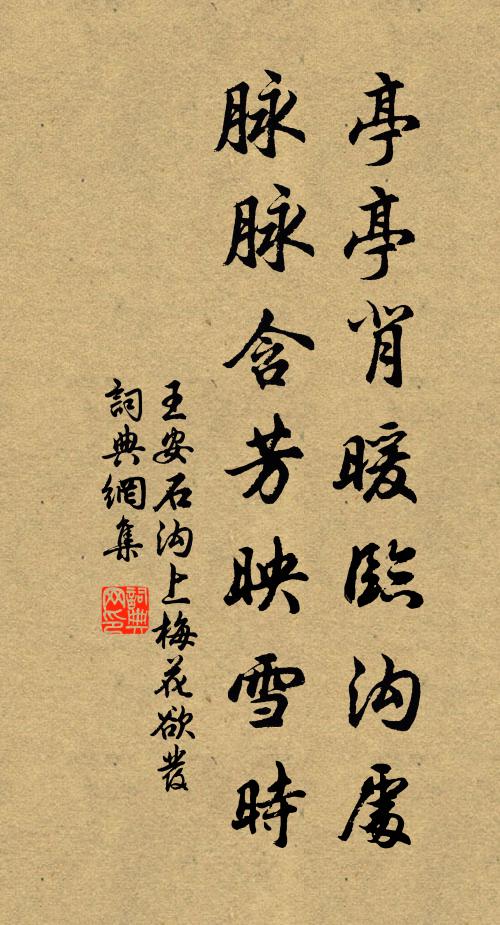 亭亭背暖臨沟處
脉脉含芳映雪時
王安石沟上梅花欲發
詞典網集
詞典网印